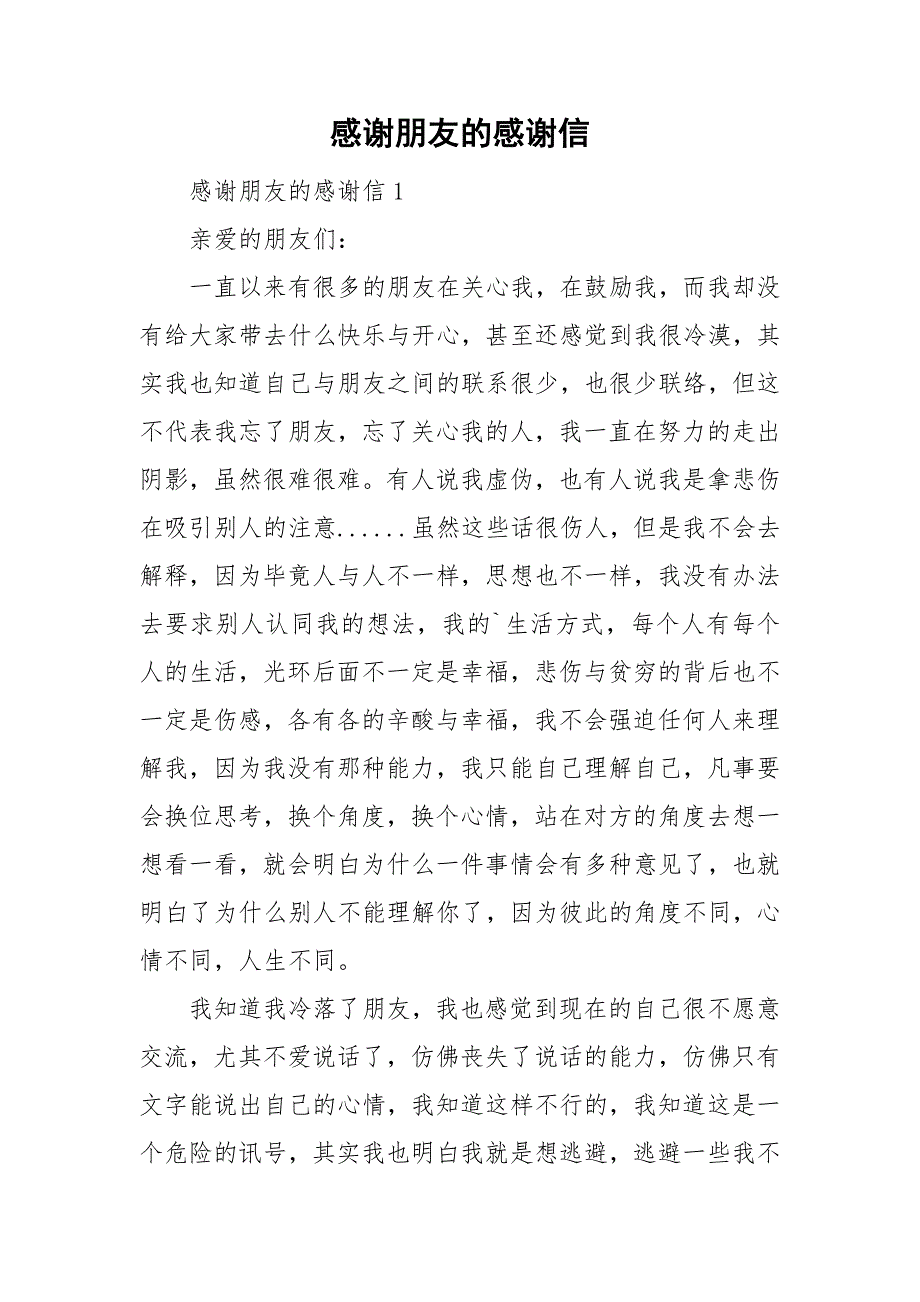 感谢朋友的感谢信
感谢朋友的感谢信1
亲爱的朋友们：
一直以来有很多的朋友在关心我，在鼓励我，而我却没
有给大家带去什么快乐与开心，甚至还感觉到我很冷漠，其
实我也知道自己与朋友之间的联系很少，也很少联络，但这
不代表我忘了朋友，忘了关心我的人，我一直在努力的走出
阴影，虽然很难很难。有人说我虚伪，也有人说我是拿悲伤
在吸引别人的注意......虽然这些话很伤人，但是我不会去
解释，因为毕竟人与人不一样，思想也不一样，我没有办法
去要求别人认同我的想法，我的`生活方式，每个人有每个
人的生活，光环后面不一定是幸福，悲伤与贫穷的背后也不
一定是伤感，各有各的辛酸与幸福，我不会强迫任何人来理
解我，因为我没有那种能力，我只能自己理解自己，凡事要
会换位思考，换个角度，换个心情，站在对方的角度去想一
想看一看，就会明白为什么一件事情会有多种意见了，也就
明白了为什么别人不能理解你了，因为彼此的角度不同，心
情不同，人生不同。
我知道我冷落了朋友，我也感觉到现在的自己很不愿意
交流，尤其不爱说话了，仿佛丧失了说话的能力，仿佛只有
文字能说出自己的心情，我知道这样不行的，我知道这是一
个危险的讯号，其实我也明白我就是想逃避，逃避一些我不